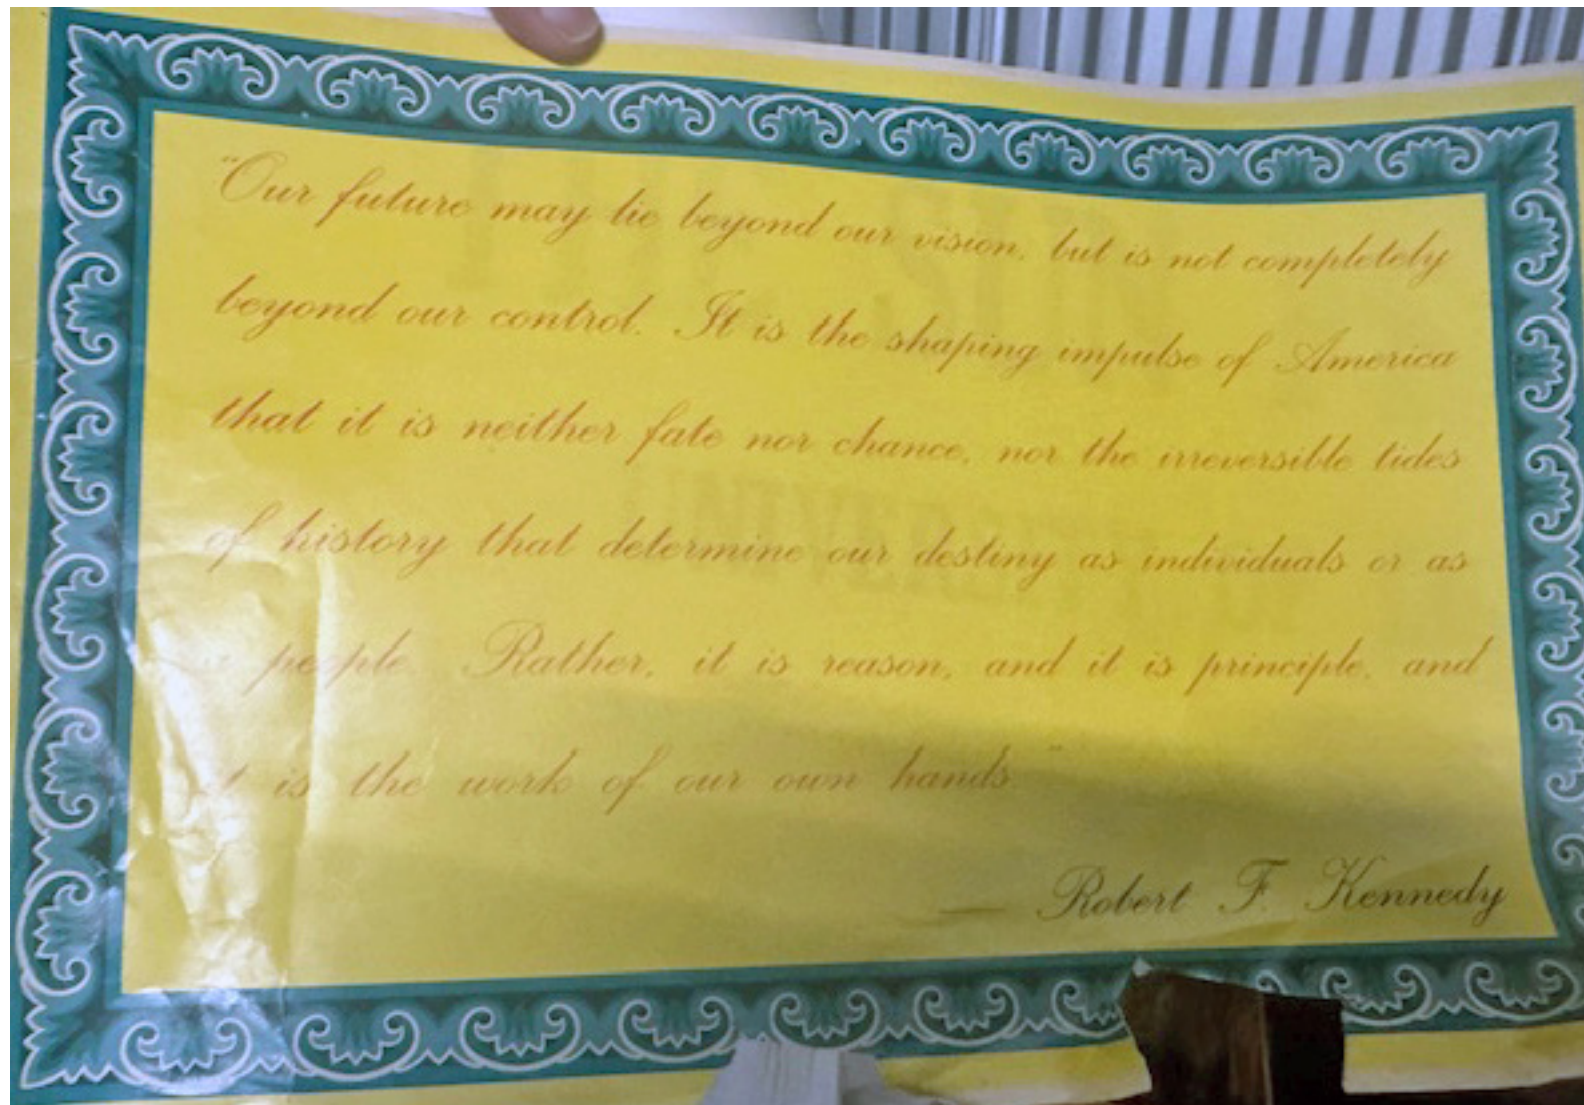 "Our future may lie beyond our vision, but is not completely
beyond our control. It is the shaping impulse of America
that it is neither fate nor chance, nor the irreversible tides
of history that determine our destiny as individuals or as
people. Rather, it is reason, and it is principle, and
it is the work of our own hands."
— Robert F. Kennedy